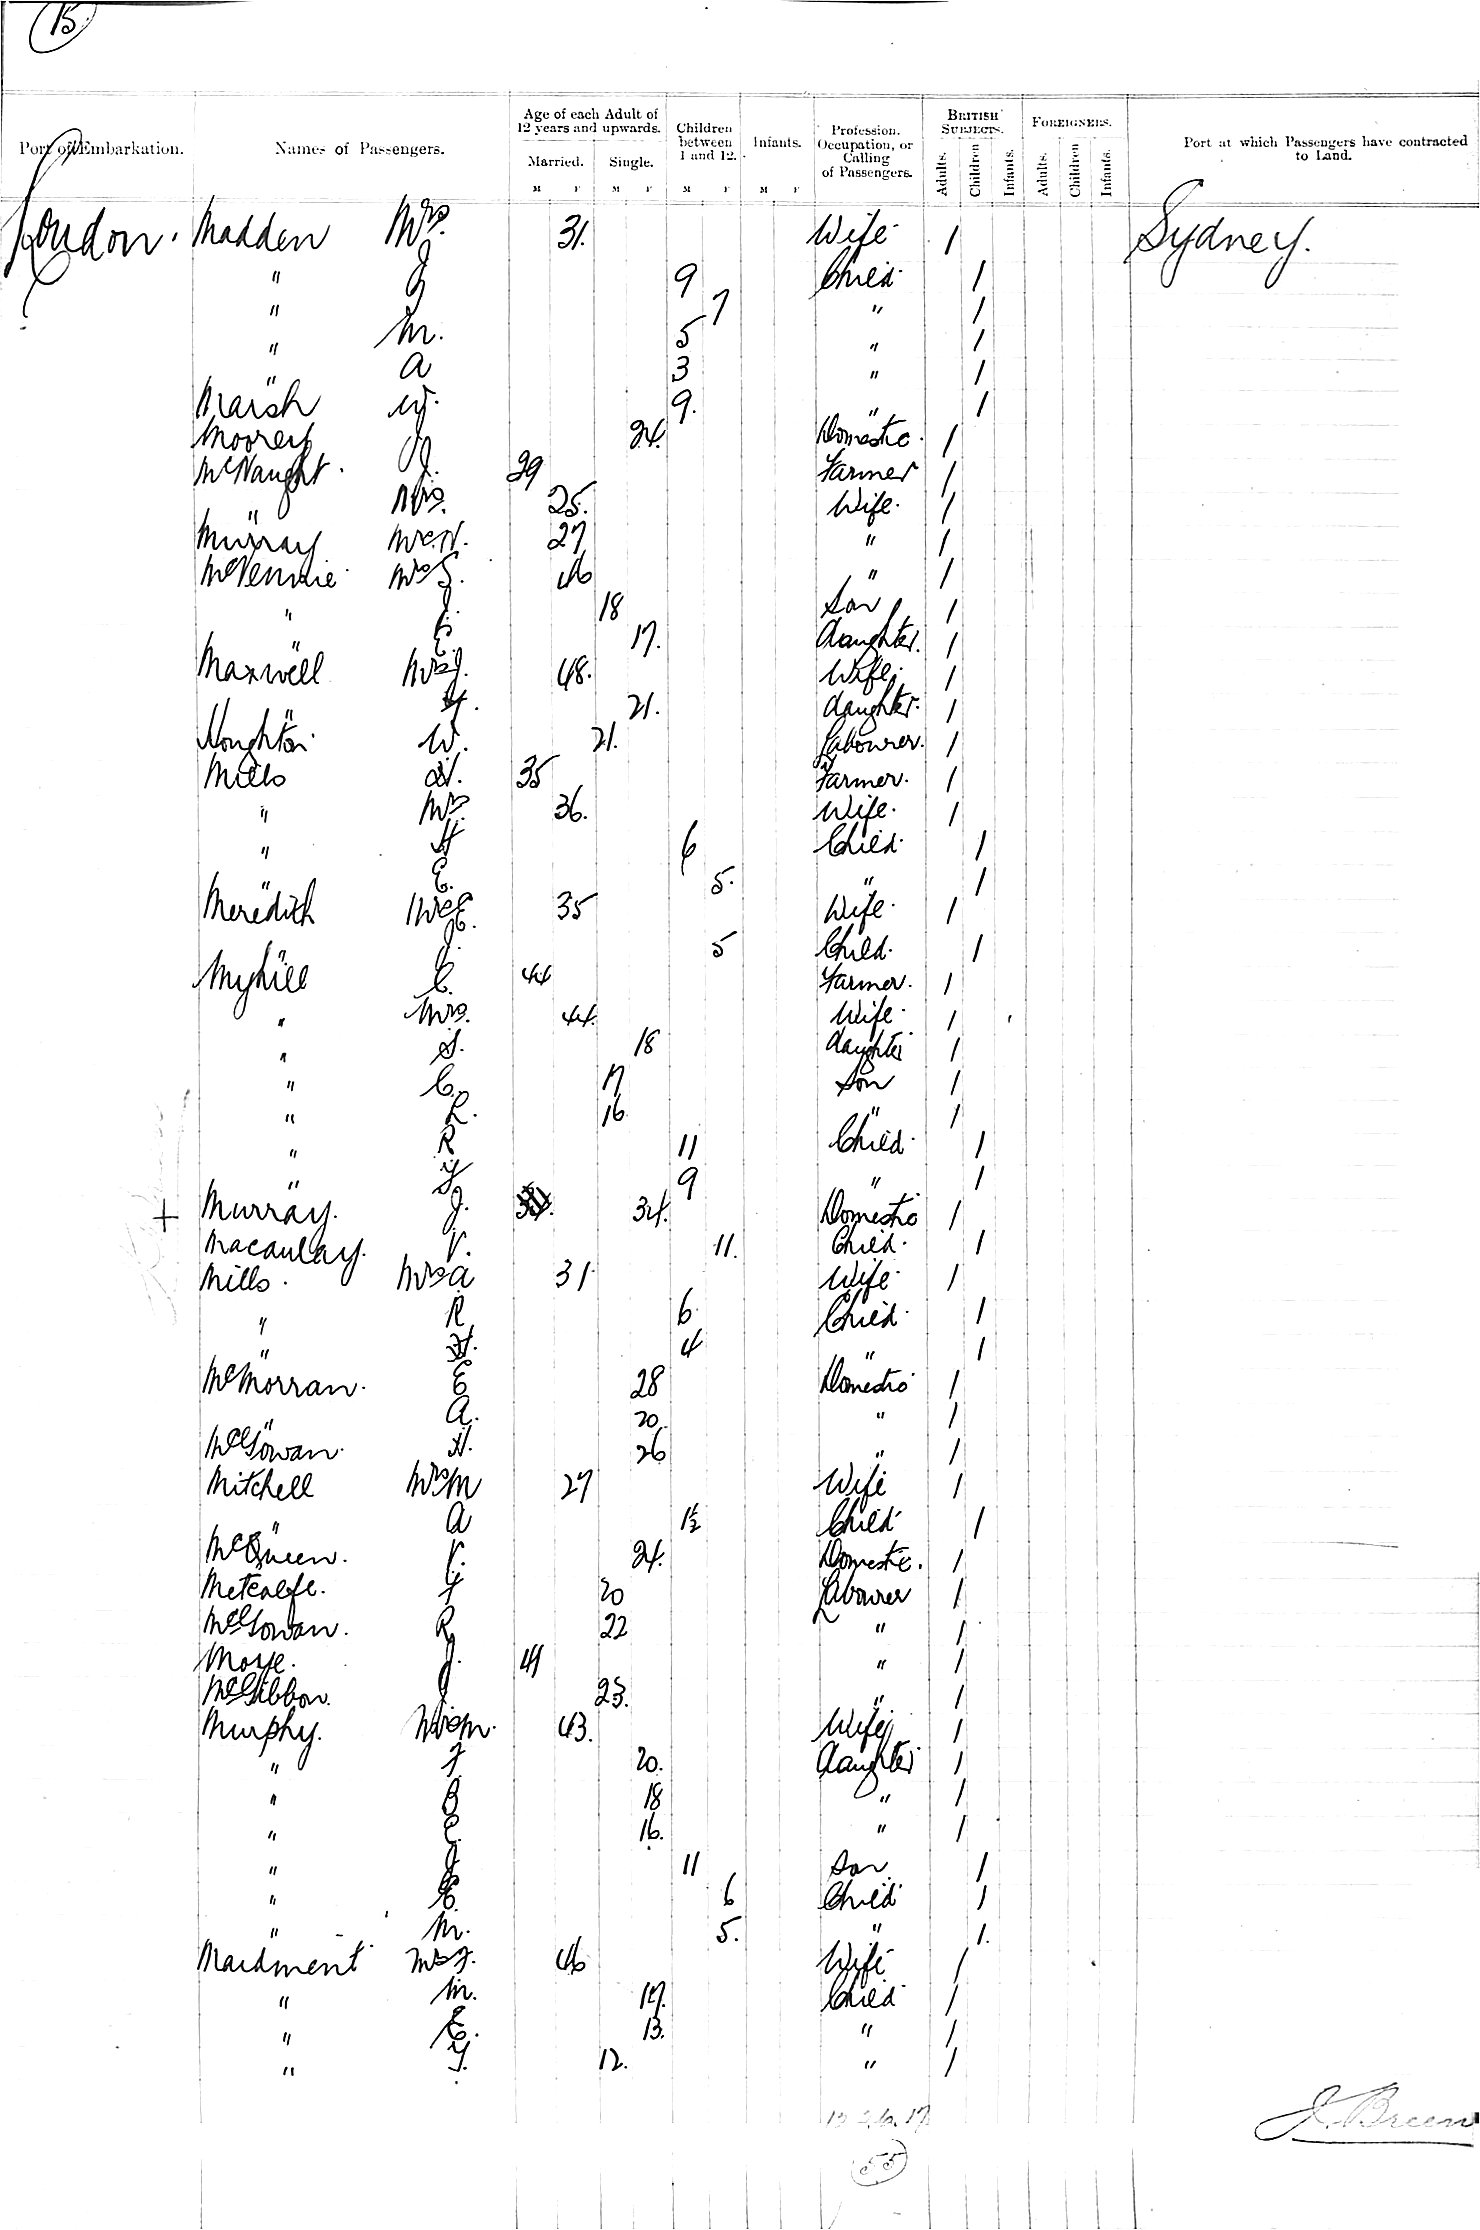 15
Port of Embarkation. Names of Passengers. Age of each Adult of 12 years and upwards. Married. Single. M F M F Children between 1 and 12. M F Infants. M F Profession, Occupation, or Calling of Passengers. BRITISH SUBJECTS. Adults. Children Infants. FOREIGNERS. Adults. Children Infants. Port at which Passengers have contracted to Land.
London. Madden Mrs. 31. Wife 1 Sydney.
" J 9 Child 1
" 7 " 1
" M. 5 " 1
" A 3 " 1
Marsh W. 9. " 1
Moorey J. 24. Domestic. 1
McNaught 29 Farmer 1
" Mrs. 25. Wife. 1
Murray Mrs N. 27 " 1
Mrs S. 46 " 1
" J. 18 Son 1
" E. 17. daughter. 1
Maxwell Mrs J. 48. Wife 1
" H. 21. daughter. 1
W. 21. Labourer. 1
Mills H. 35 Farmer. 1
" Mrs. 36. Wife. 1
" H 6 Child 1
" E. 5. " 1
Meredith Mrs E. 35 Wife. 1
" J. 5 Child. 1
Myhill C. 44 Farmer. 1
" Mrs. 44. Wife 1
" S. 18 daughter 1
" C. 17 Son 1
" L. 16 " 1
" R 11 Child 1
" 9 " 1
+ Murray. J. 34. Domestic 1
Macaulay. V. 11. Child. 1
Mills. Mrs A 31 Wife 1
" R 6 Child 1
" H. 4 " 1
McMorran. E 28 Domestic 1
" A. 20. " 1
McGowan. H. 26 " 1
Mitchell Mrs M 27 Wife 1
" A 1½ Child 1
McQueen. V. 24. Domestic. 1
Metcalfe. F 20 Labourer 1
McGowan. R 22 " 1
Moye. J. 41 " 1
McGibbon. 23. " 1
Murphy. Mrs M. 43. Wife 1
" F. 20. daughter 1
" B 18 " 1
" C. 16. " 1
" J 11 Son 1
" E. 6 Child 1
" M. 5. " 1.
Maidment Mrs F. 46 Wife 1
" M. 17. Child 1
" E. 13. " 1
" Y. 12. " 1
J. Breen
55